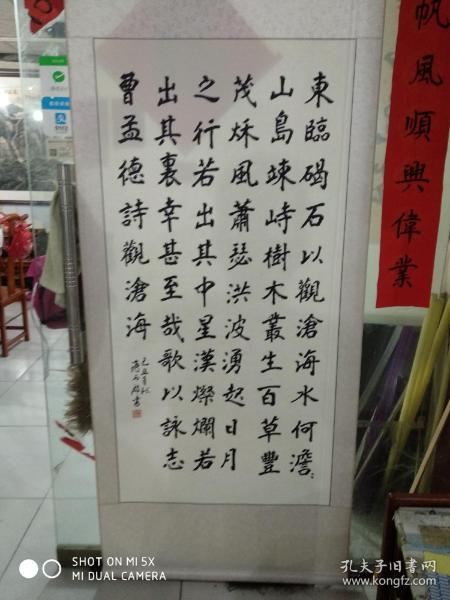 東臨碣石以觀滄海水何澹〻
山島竦峙樹木叢生百草豐
茂秌風蕭瑟洪波湧起日月
之行若出其中星漢燦爛若
出其裏幸甚至哉歌以詠志
曹孟德詩觀滄海
己丑
書
帆風順興偉業
SHOT ON MI 5X
MI DUAL CAMERA
孔夫子旧书网
www.kongfz.com